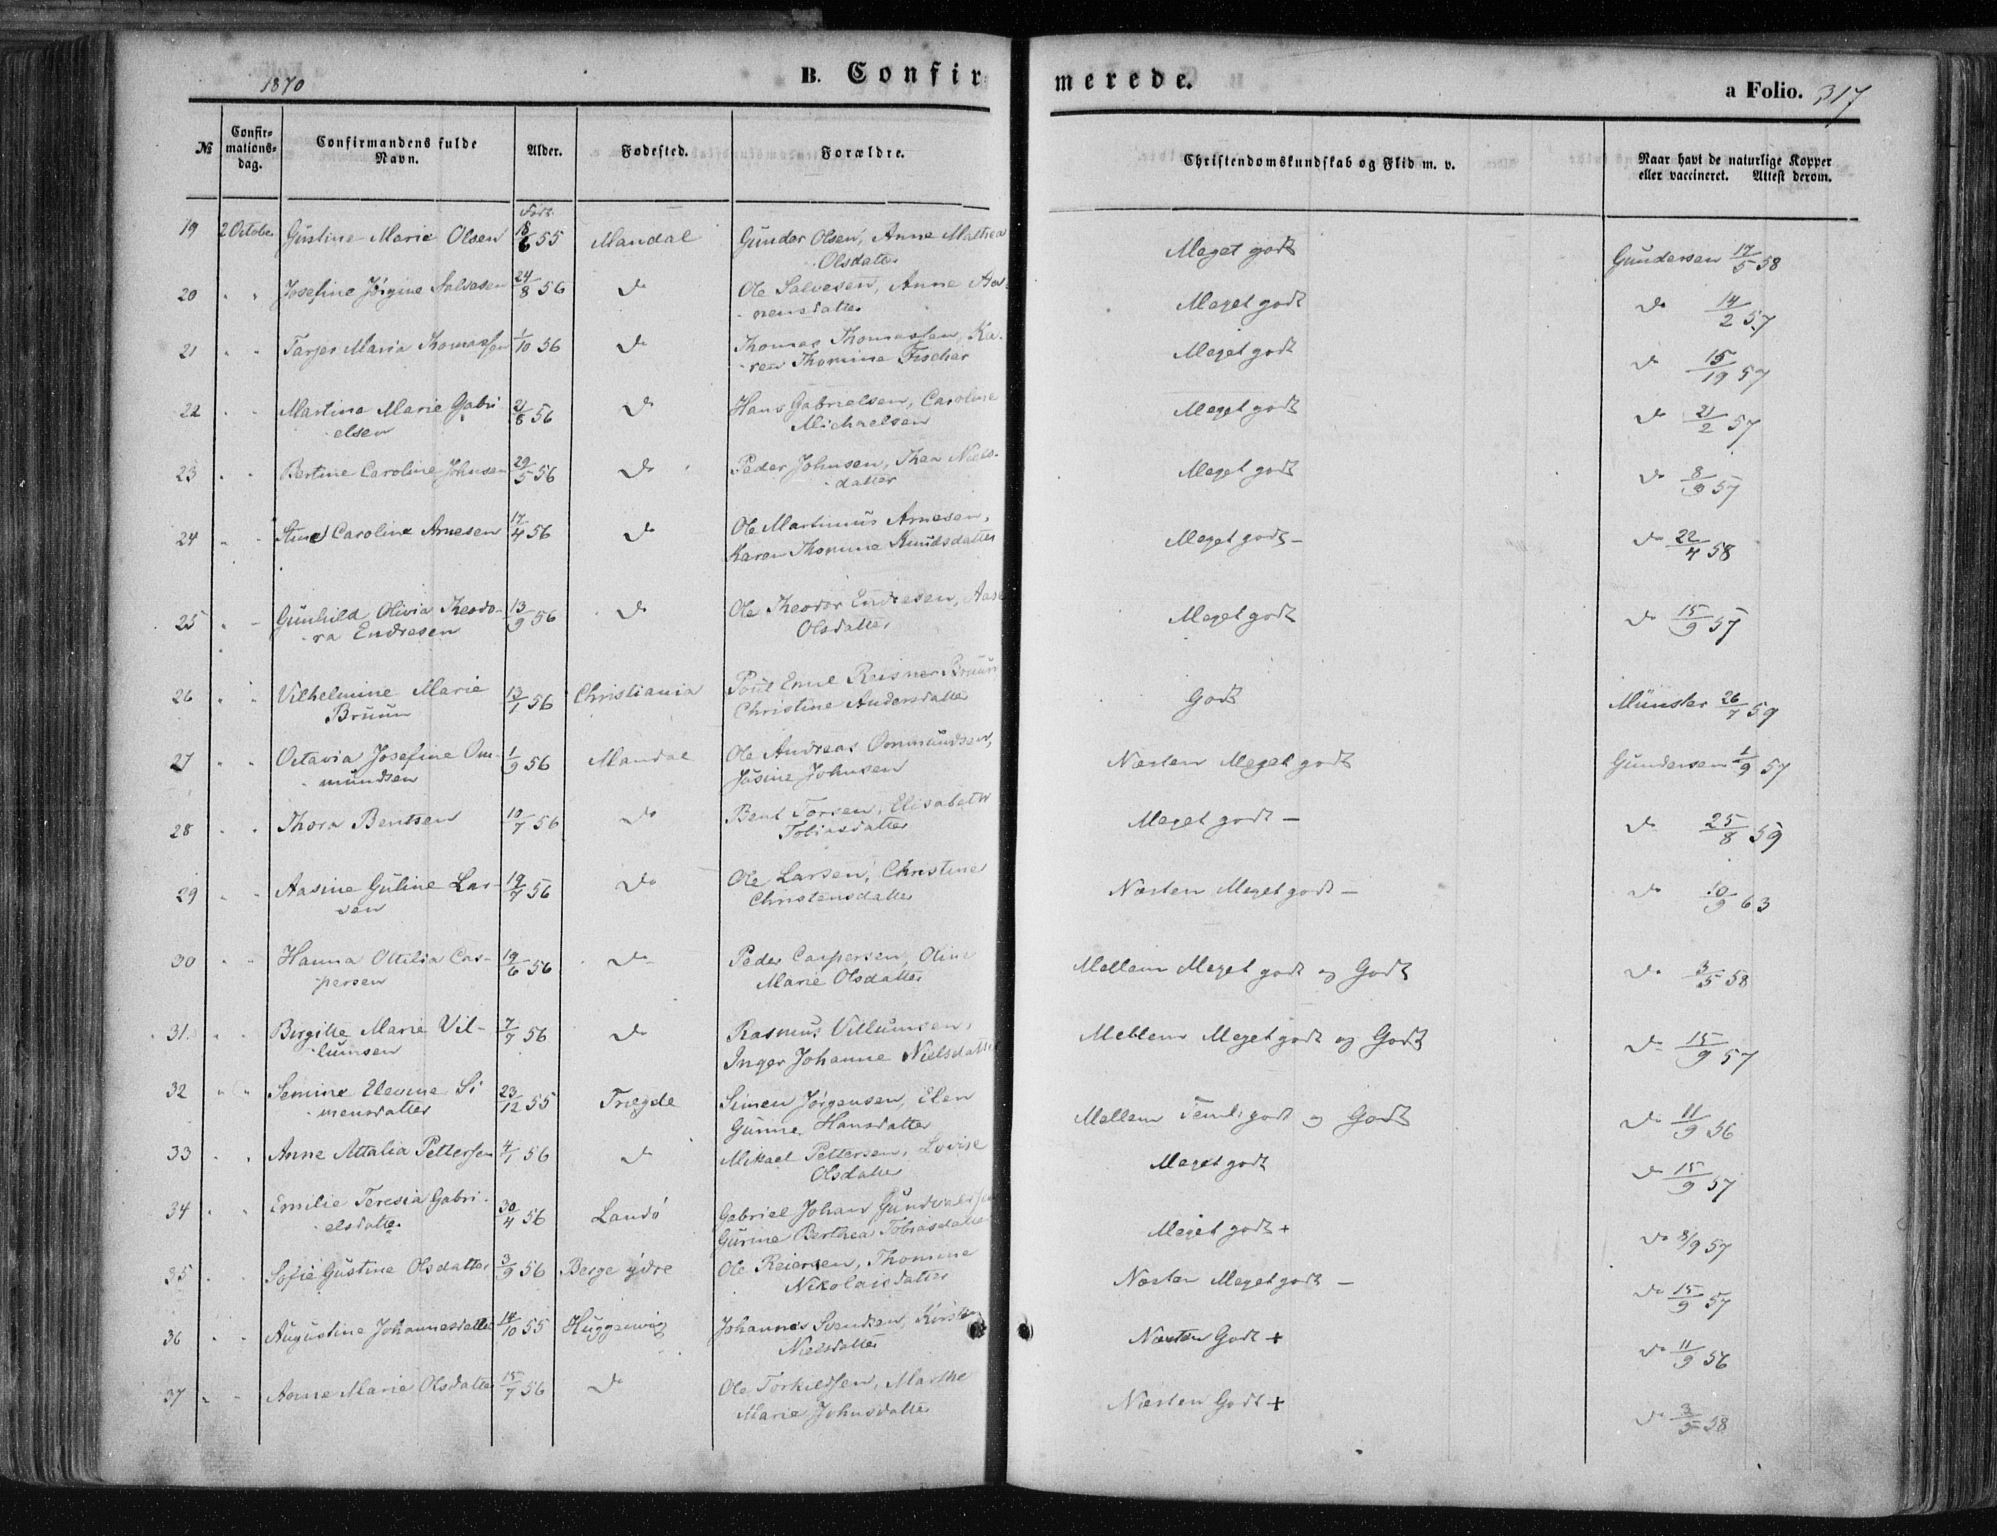 1870 B. Confirmerede. a Folio. 317
№ Confirmations-dag. Confirmandens fulde Navn. Alder. Fødested. Forældre. Christendomskundskab og Flid m. v. Naar havt de naturlige Kopper eller vaccineret. Attest derom.
19 2 October Gustine Marie Olsen Født 18/6 55 Mandal Gunder Olsen, Anne Mathea Meget godt Gundersen 17/5 58
Olsdatter
20 " " Josefine Jörgine Salvesen 24/8 56 do Ole Salvesen, Anne Aa- Meget godt do 14/2 57
nensdatter
21 " " Maria Thomassen 1/10 56 do Thomas Thomassen, Ka- Meget godt do 15/19 57
ren Thomine Fischer
22 " " Martine Marie Gabri- 21/8 56 do Hans Gabrielsen, Caroline Meget godt do 21/2 57
elsen Michaelsen
23 " " Bertine Caroline Johnsen 29/5 56 do Peder Johnsen, Thea Niels- Meget godt do 8/9 57
datter
24 " " Stine Caroline Arnesen 17/4 56 do Ole Martinius Arnesen, Meget godt - do 22/4 58
Karen Thomine Knudsdatter
25 " " Gunhild Olivia Theodo- 13/9 56 do Ole Theodor Endresen, Aase Meget godt do 15/9 57
ra Endresen Olsdatter
26 " " Vilhelmine Marie 13/1 56 Christiania Poul Emil Reisner Bruun Godt Münster 26/7 59
Bruun Christine Andersdatter
27 " " Octavia Josefine Om- 1/9 56 Mandal Ole Andreas Ommundsen, Næsten Meget godt Gundersen 1/9 57
mundsen Josine Johnsen
28 " " Thora Bentsen 10/7 56 do Bent Torsen, Elisabeth Meget godt - do 25/8 59
Tobiasdatter
29 " " Aasine Guline Lar- 19/7 56 do Ole Larsen, Christine Næsten Meget godt - do 10/9 63
sen Christensdatter
30 " " Hanna Ottilia Cas- 19/6 56 do Peder Caspersen, Oline Mellem Meget godt og Godt do 3/5 58
persen Marie Olsdatter
31. " " Birgitte Marie Vil- 7/7 56 do Rasmus Villumsen, Mellem Meget godt og Godt do 15/9 57
lumsen Inger Johanne Nielsdatter
32 " " Semine Elevine Si- 23/12 55 Trægde Simen Jörgensen, Elen Mellem Teml. godt og Godt do 11/9 56
mensdatter Gunne Hansdatter
33 " " Anne Attalia Pettersen 4/1 56 do Mikael Pettersen, Lovise Meget godt do 15/9 57
Olsdatter
34 " " Emilie Teresia Gabri- 30/4 56 Landö Gabriel Johan Meget godt + do 8/9 57
elsdatter Gurine Berthea Tobiasdatter
35 " " Sofie Gustine Olsdatter 3/9 56 Berge ydre Ole Reiersen, Thomine Næsten Meget godt - do 15/9 57
Nikolaisdatter
36 " " Augustine Johannesdatter 14/10 55 Huggenvig Johannes Svendsen, Næsten Godt + do 11/9 56
Nielsdatter
37 " " Anne Marie Olsdatter 15/7 56 do Ole Torkildsen, Marthe Næsten Godt + do 3/5 58
Marie Johnsdatter